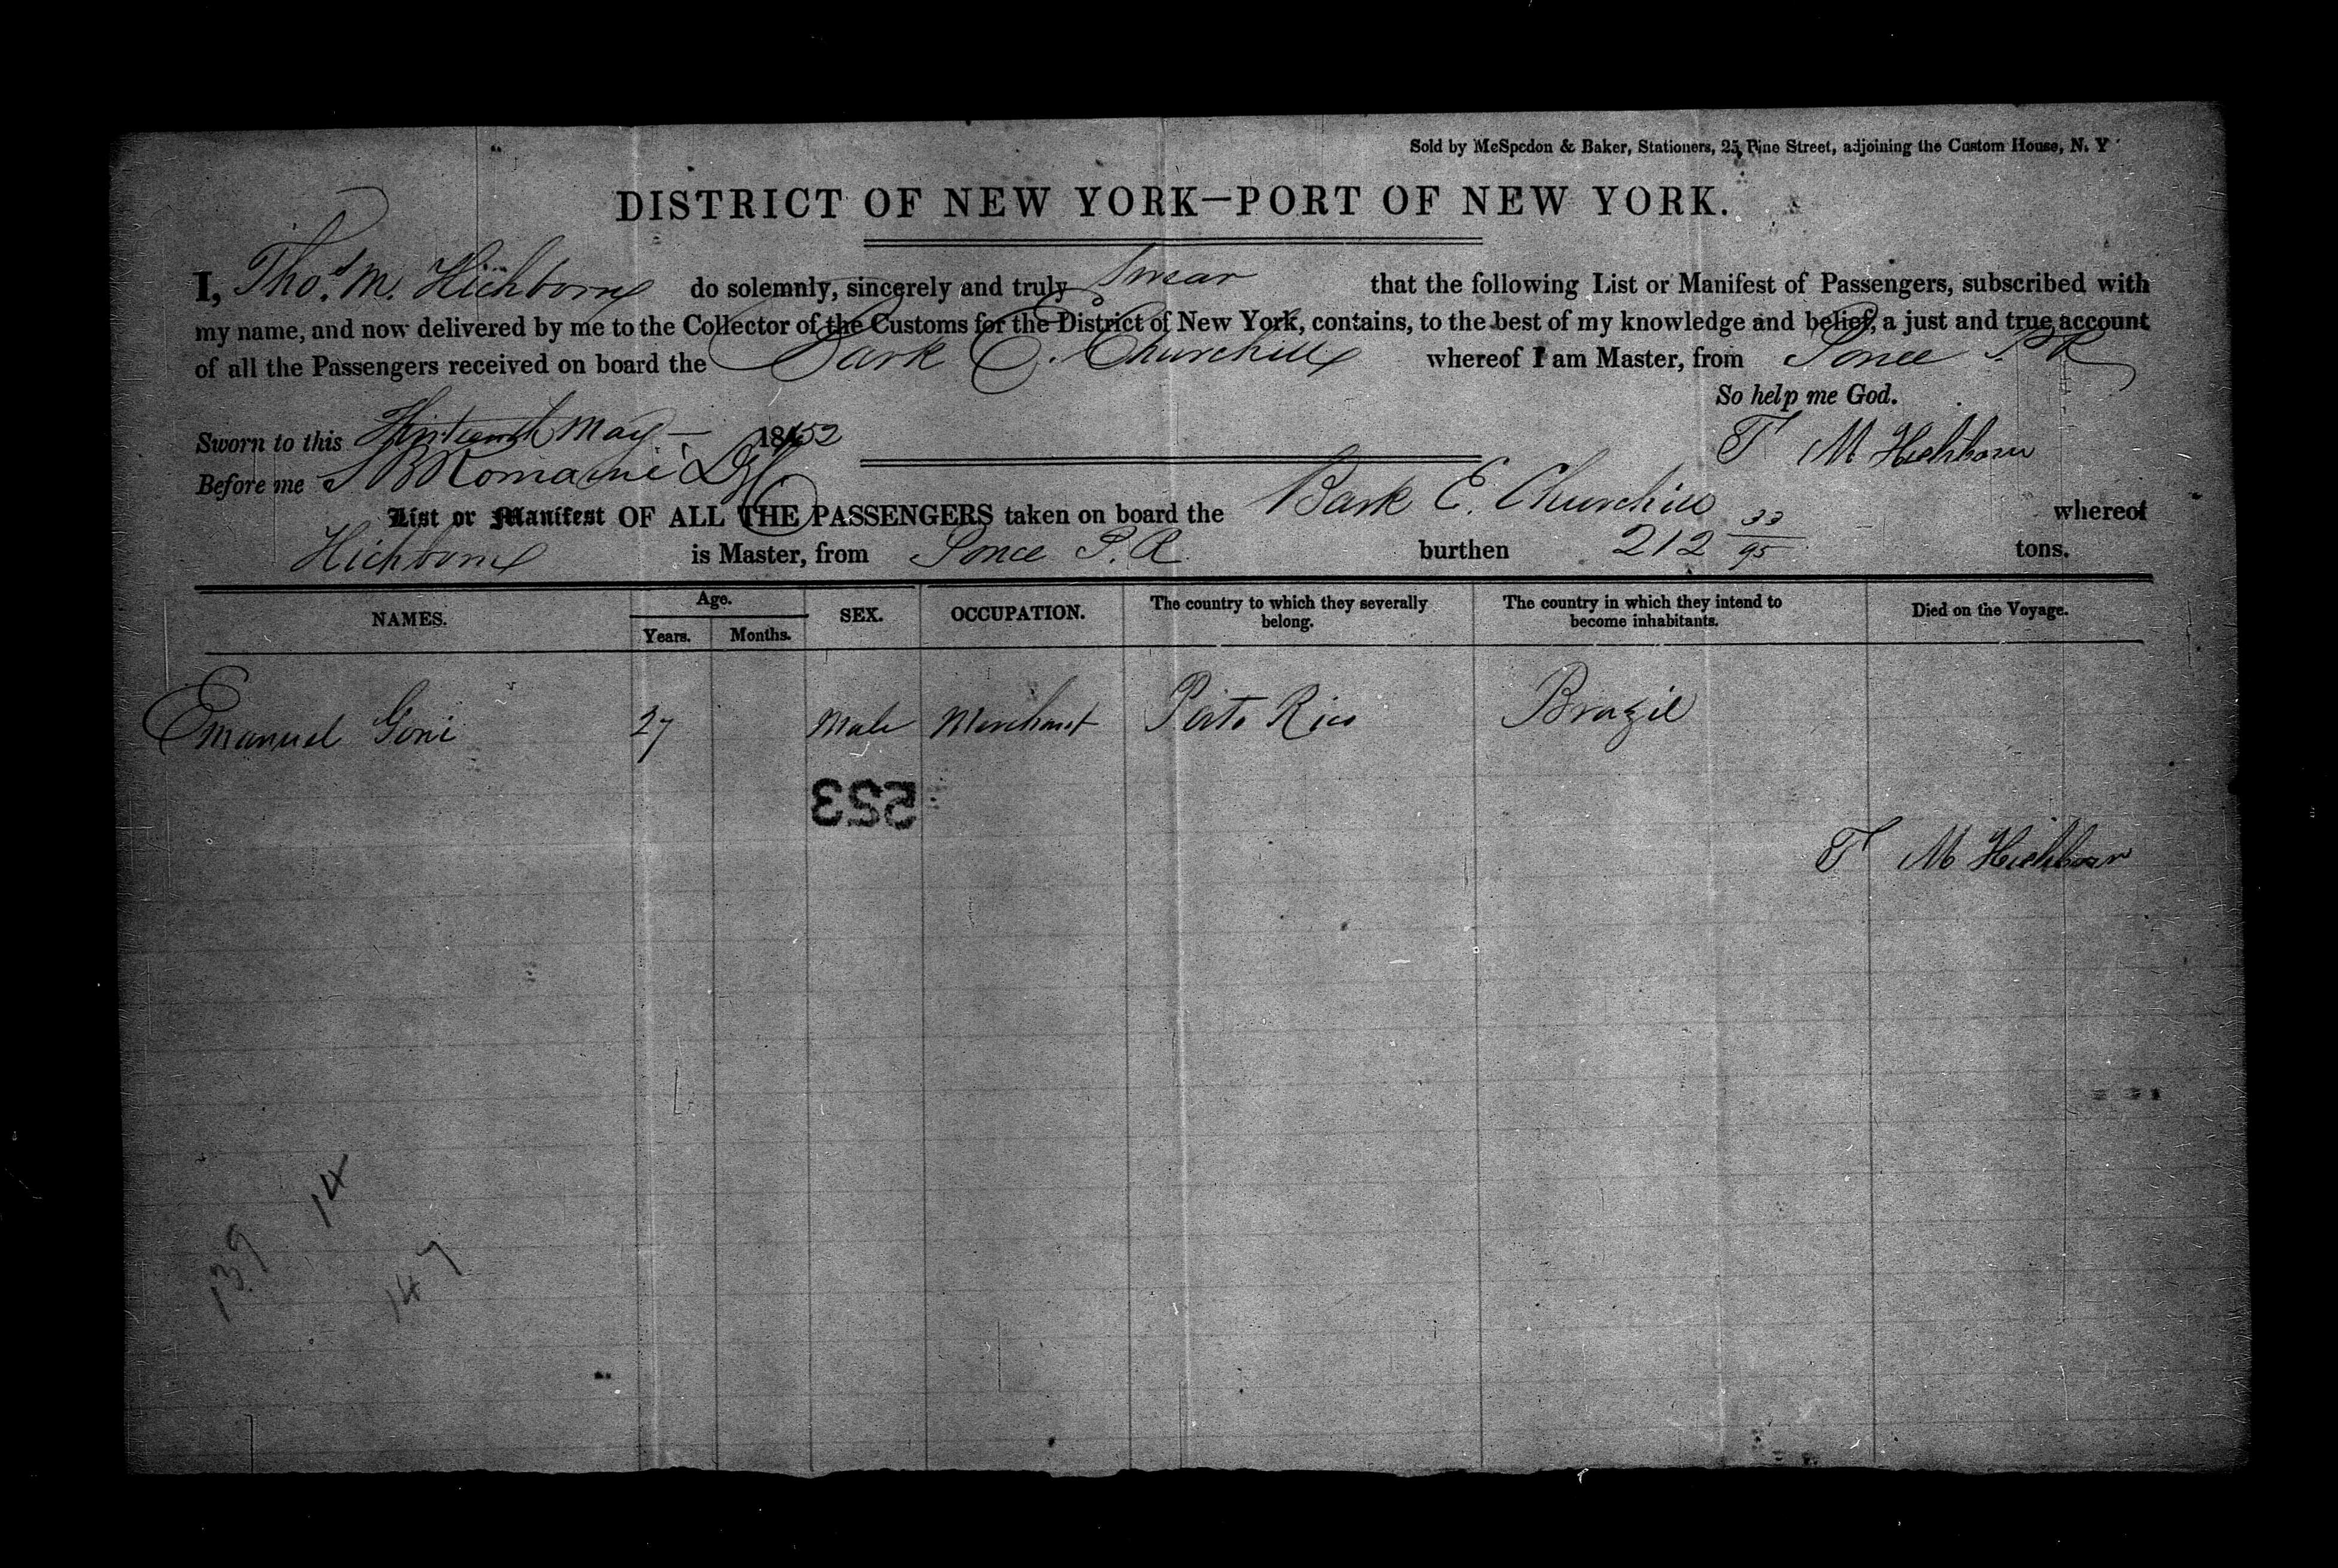 Sold by McSpedon & Baker, Stationers, 25 Pine Street, adjoining the Custom House, N. Y
DISTRICT OF NEW YORK—PORT OF NEW YORK.
I, Thos. M. Hichborn do solemnly, sincerely and truly Swear that the following List or Manifest of Passengers, subscribed with
my name, and now delivered by me to the Collector of the Customs for the District of New York, contains, to the best of my knowledge and belief, a just and true account
of all the Passengers received on board the Bark E. Churchill whereof I am Master, from Ponce P.R
So help me God.
Sworn to this May 1852
T M Hichborn
Before me Romaine
List or Manifest OF ALL THE PASSENGERS taken on board the Bark E. Churchill whereof
Hichborn is Master, from Ponce P. R. burthen 212 33/95 tons.
NAMES. Age. Years. Months. SEX. OCCUPATION. The country to which they severally belong. The country in which they intend to become inhabitants. Died on the Voyage.
Emanuel Goni 27 Male Merchant Porto Rico Brazil
253
T M Hichborn
14
139
147